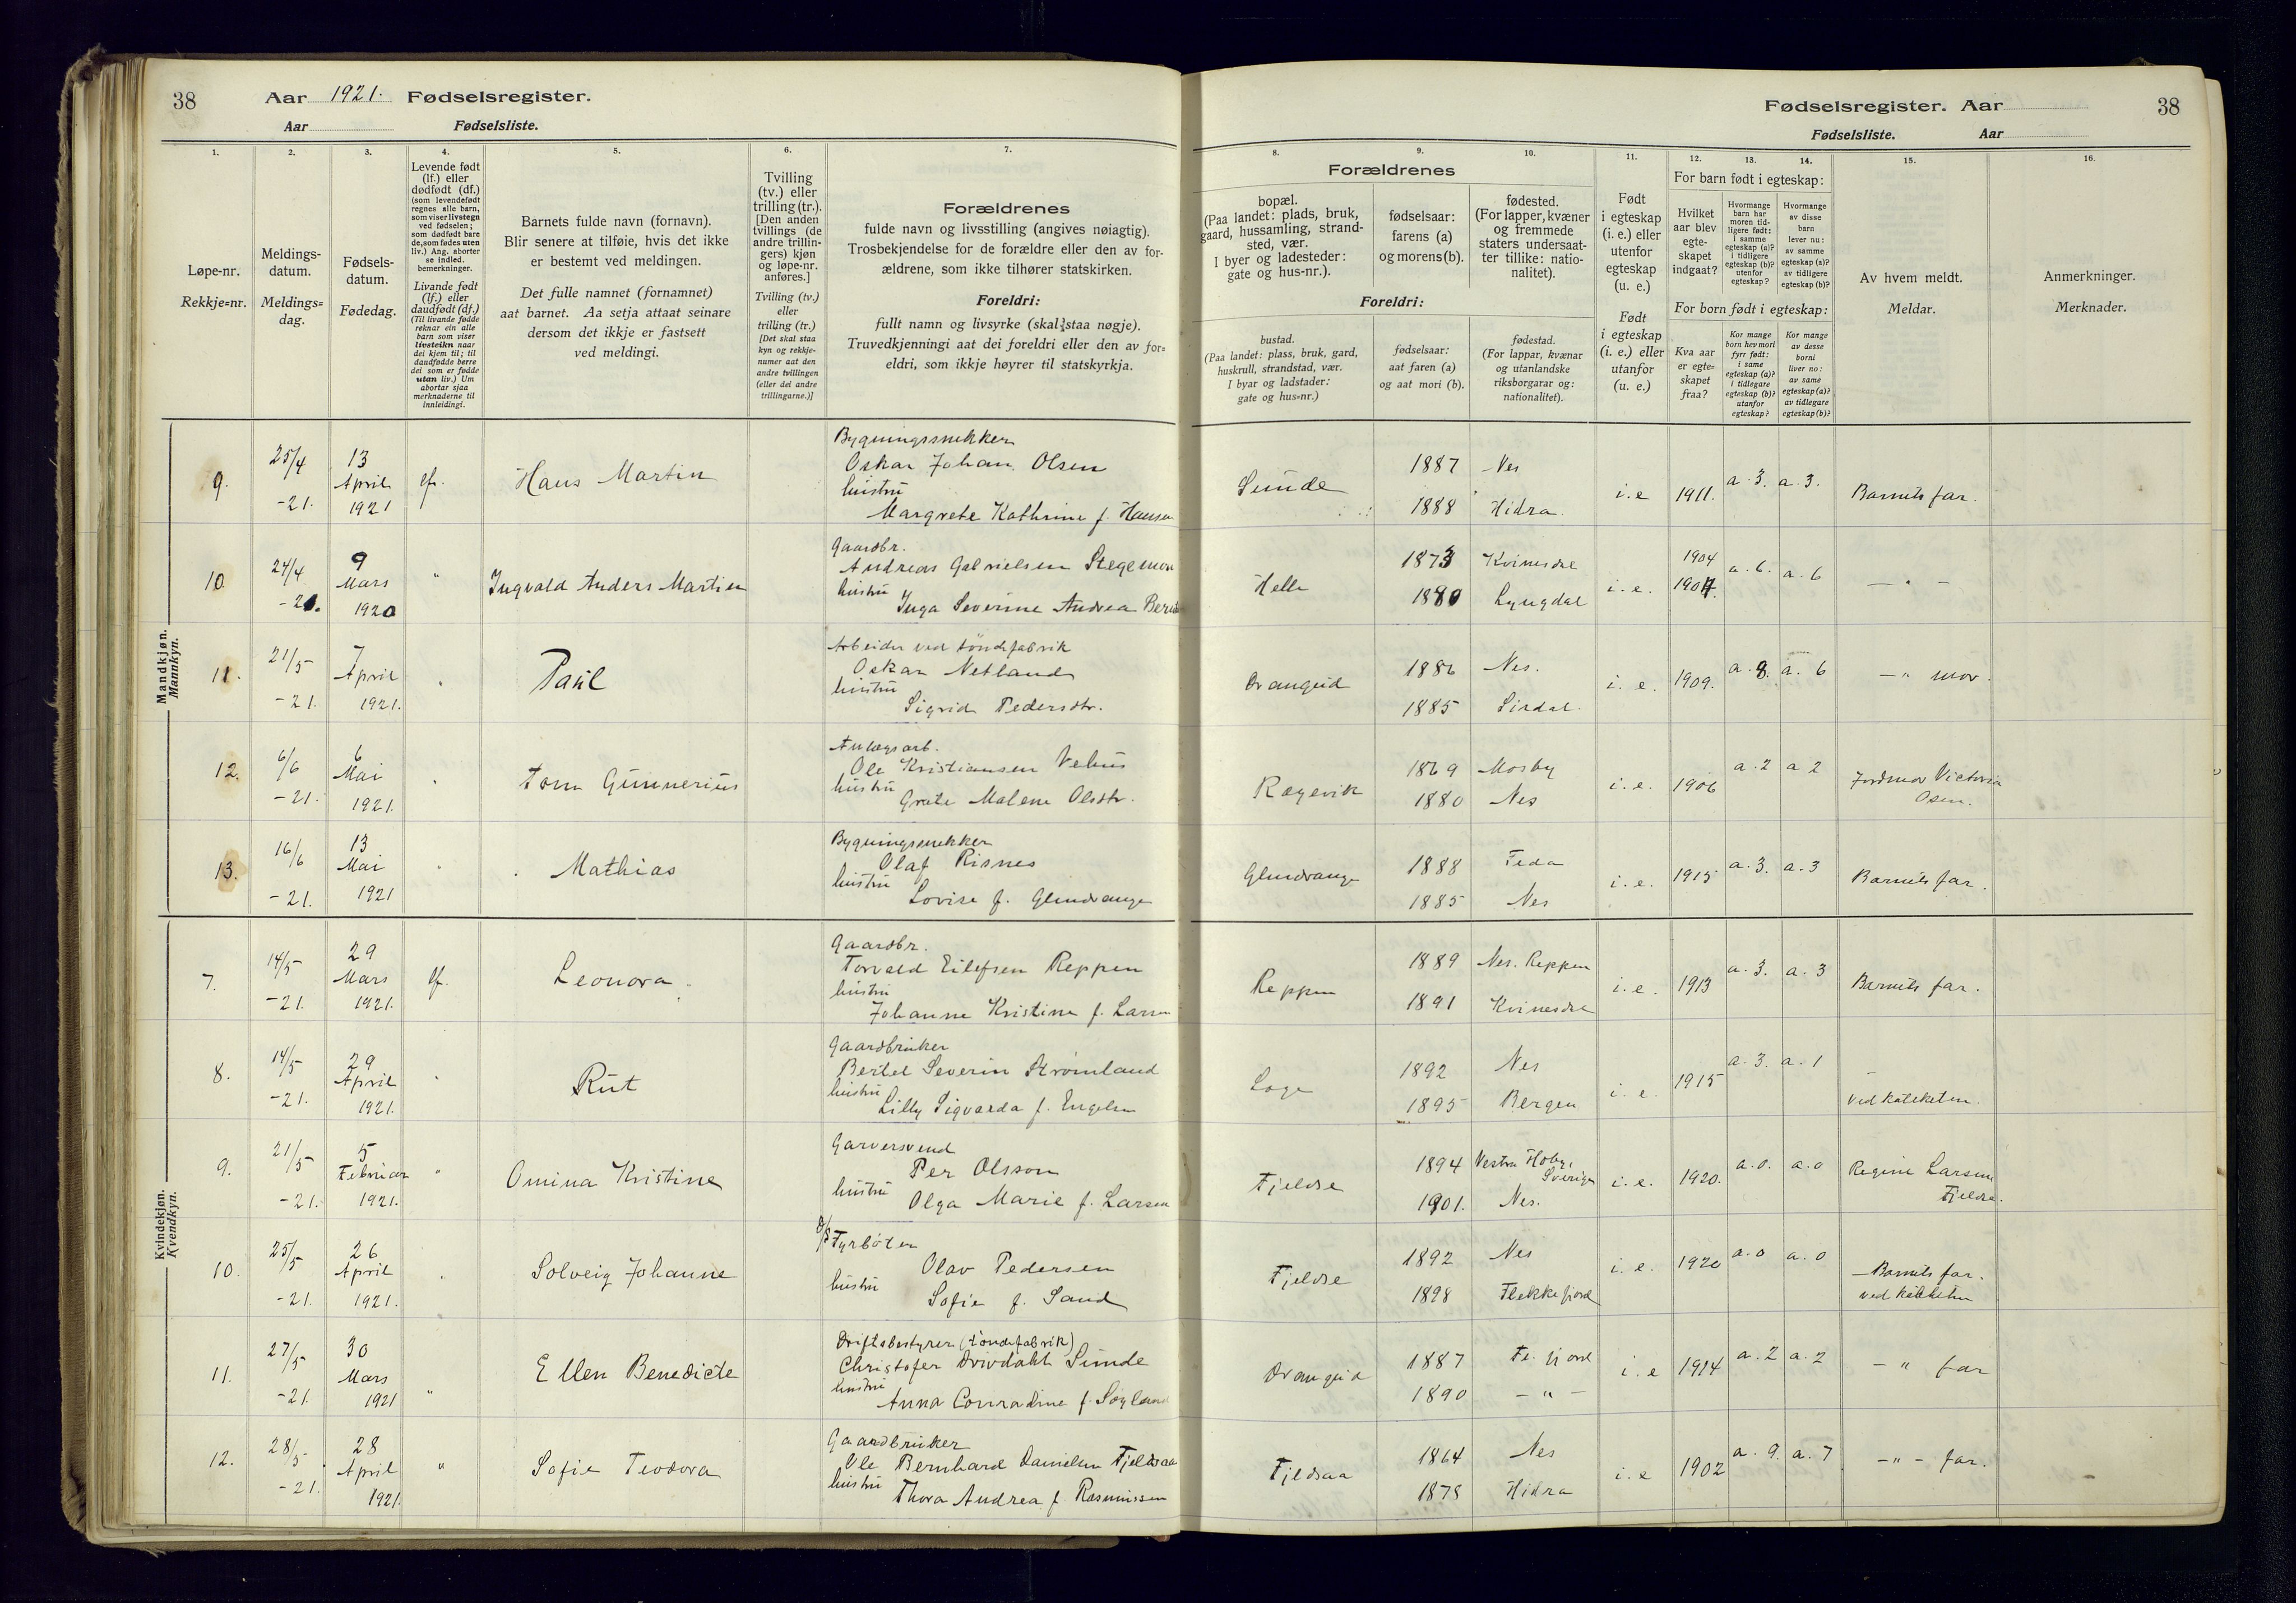 38 Aar 1921. Fødselsregister.
Aar Fødselsliste.
Fødselsregister. Aar 38
Fødselsliste. Aar
1. 2. 3. 4. 5. 6. 7. 8. 9. 10. 11. 12. 13. 14. 15. 16.
Løpe-nr.
Rekkje=nr.
Meldings-
datum.
Meldings=
dag.
Fødsels-
datum.
Fødedag.
Levende født
(lf.) eller
dødfødt (df.)
(som levendefødt
regnes alle barn,
som viser livstegn
ved fødselen;
som dødfødt bare
de, som fødes uten
liv.) Ang. aborter
se indled.
bemerkninger.
Livande født
(lf.) eller
daudfødt (df.)
(Til livande fødde
reknar ein alle
barn som viser
livsteikn naar
dei kjem til; til
daudfødde berre
dei som er fødde
utan liv.) Um
abortar sjaa
merknaderne til
innleidingi.
Barnets fulde navn (fornavn).
Blir senere at tilføie, hvis det ikke
er bestemt ved meldingen.
Det fulle namnet (fornamnet)
aat barnet. Aa setja attaat seinare
dersom det ikkje er fastsett
ved meldingi.
Tvilling
(tv.) eller
trilling (tr.).
[Den anden
tvillings (de
andre trillin-
gers) kjøn
og løpe-nr.
anføres.]
Tvilling (tv.)
eller
trilling (tr.)
[Det skal staa
kyn og rekkje-
numer aat den
andre tvillingen
(eller dei andre
trillingarne.)]
Forældrenes
fulde navn og livsstilling (angives nøiagtig).
Trosbekjendelse for de forældre eller den av for-
ældrene, som ikke tilhører statskirken.
Foreldri:
fullt namn og livsyrke (skal staa nøgje).
Truvedkjenningi aat dei foreldri eller den av for=
eldri, som ikkje høyrer til statskyrkja.
Forældrenes
bopæl.
(Paa landet: plads, bruk,
gaard, hussamling, strand-
sted, vær.
I byer og ladesteder:
gate og hus-nr.).
fødselsaar:
farens (a)
og morens (b).
fødested.
(For lapper, kvæner
og fremmede
staters undersaat-
ter tillike: natio-
nalitet).
Foreldri:
bustad.
(Paa landet: plass, bruk, gard,
huskrull, strandstad, vær.
I byar og ladstader:
gate og hus=nr.)
fødselsaar:
aat faren (a)
og aat mori (b).
fødestad.
(For lappar, kvænar
og utanlandske
riksborgarar og:
nationalitet).
Født
i egteskap
(i. e.) eller
utenfor
egteskap
(u. e.)
Født
i egteskap
(i. e.) eller
utanfor
(u. e.)
For barn født i egteskap:
Hvilket
aar blev
egte-
skapet
indgaat?
Hvormange
barn har
moren tid-
ligere født:
i samme
egteskap (a)?
i tidligere
egteskap (b)?
utenfor
egteskap?
Hvormange
av disse
barn
lever nu:
av samme
egteskap (a)?
av tidligere
egteskap (b)?
For born født i egteskap:
Kva aar
er egte=
skapet
fraa?
Kor mange
born hev mori
fyrr født:
i same
egteskap (a)?
i tidlegare
egteskap (b)?
utanfor
egteskap?
Kor mange
av desse
borni
liver no:
av same
egteskap (a)?
av tidlegare
egteskap (b)?
Av hvem meldt.
Meldar.
Anmerkninger.
Merknader.
Mandkjøn.
Mannkyn.
9. 25/4 -21. 13 April 1921 lf. Hans Martin
Bygningssnekker
Oskar Johan Olsen
hustru
Margrete Kathrine f. Hansen
Sunde 1887 Nes
1888 Hidra.
i. e 1911. a. 3. a. 3. Barnets far.
10 24/4 -21. 9 Mars 1920 " Ingvald Anders Martin
Gaardbr.
Andreas Gabrielsen Stegemoen
hustru
Inga Severine Andrea
Helle 1873 Kvinesdal
1880 Lyngdal
i. e. 1904
1904. a. 6. a. 6 — " —
11. 21/5 -21. 7 April 1921. " Paul
Arbeider ved tøndefabrik
Oskar Netland
hustru
Sigrid Pedersdtr.
Drangeid 1886 Nes.
1885 Sirdal.
i. e. 1909. a. 8. a. 6 — " mor.
12. 6/6 -21. 6 Mai 1921. " Tom Gunnerius
Anlægsarb.
Ole Kristiansen Vehus
hustru
Grete Malene Olsdtr.
Rægevik 1869 Mosby
1880 Nes
i. e. 1906 a. 2 a 2 Jordmor Victoria
Osen.
13. 16/6 -21. 13 Mai 1921 " Mathias
Bygningssnekker
Olaf Risnes
hustru
Lovise f. Glendrange
Glendrange 1888 Feda
1885 Nes
i. e. 1915 a. 3. a. 3 Barnets far.
Kvindekjøn.
Kvendkyn.
7. 14/5 -21. 29 Mars 1921. lf. Leonora.
Gaardbr.
Torvald Eilefsen Reppen
hustru
Johanne Kristine f. Larsen
Reppen 1889 Nes. Reppen
1891 Kvinesdal
i. e. 1913 a. 3. a. 3 Barnets far.
8. 14/5 -21. 29 April 1921. " Rut
Gaardbruker
Bertel Severin Strømland
hustru
Lilly Sigvarda f. Engelsen
Loge 1892 Nes
1895 Bergen
i. e. 1915 a. 3. a. 1 ved kateketen.
9. 21/5 -21. 5 Februar 1921. " Omina Kristine
Garversvend
Per Olsson
hustru
Olga Marie f. Larsen
Fjeldse 1894 Vestra Hoby,
Sverige
1901. Nes.
i. e. 1920. a. 0. a. 0 Regine Larsen
Fjeldse.
10. 25/5 -21. 26 April 1921. " Solveig Johanne
Fyrbøter
Olav Pedersen
hustru
Sofie f. Sand
Fjeldse 1892 Nes
1898 Flekkefjord
i. e. 1920 a. 0 a. 0 — Barnets far.
ved kateketen
11. 27/5 -21. 30 Mars 1921 " Ellen Benedicte
Driftsbestyrer (tøndefabrik)
Christofer Drivdahl Sunde
hustru
Anna Conradine f. Søyland
Drangeid 1887 Fl. fjord
1890 — " —
i. e 1914 a. 2 a. 2 — " far
12. 28/5 -21. 28 April 1921. " Sofie Teodora
Gaardbruker
Ole Bernhard Danielsen Fjeldsaa
hustru
Thora Andrea f. Rasmussen
Fjeldsaa 1864 Nes
1878 Hidra
i. e 1902 a. 9. a. 7 — " — far.